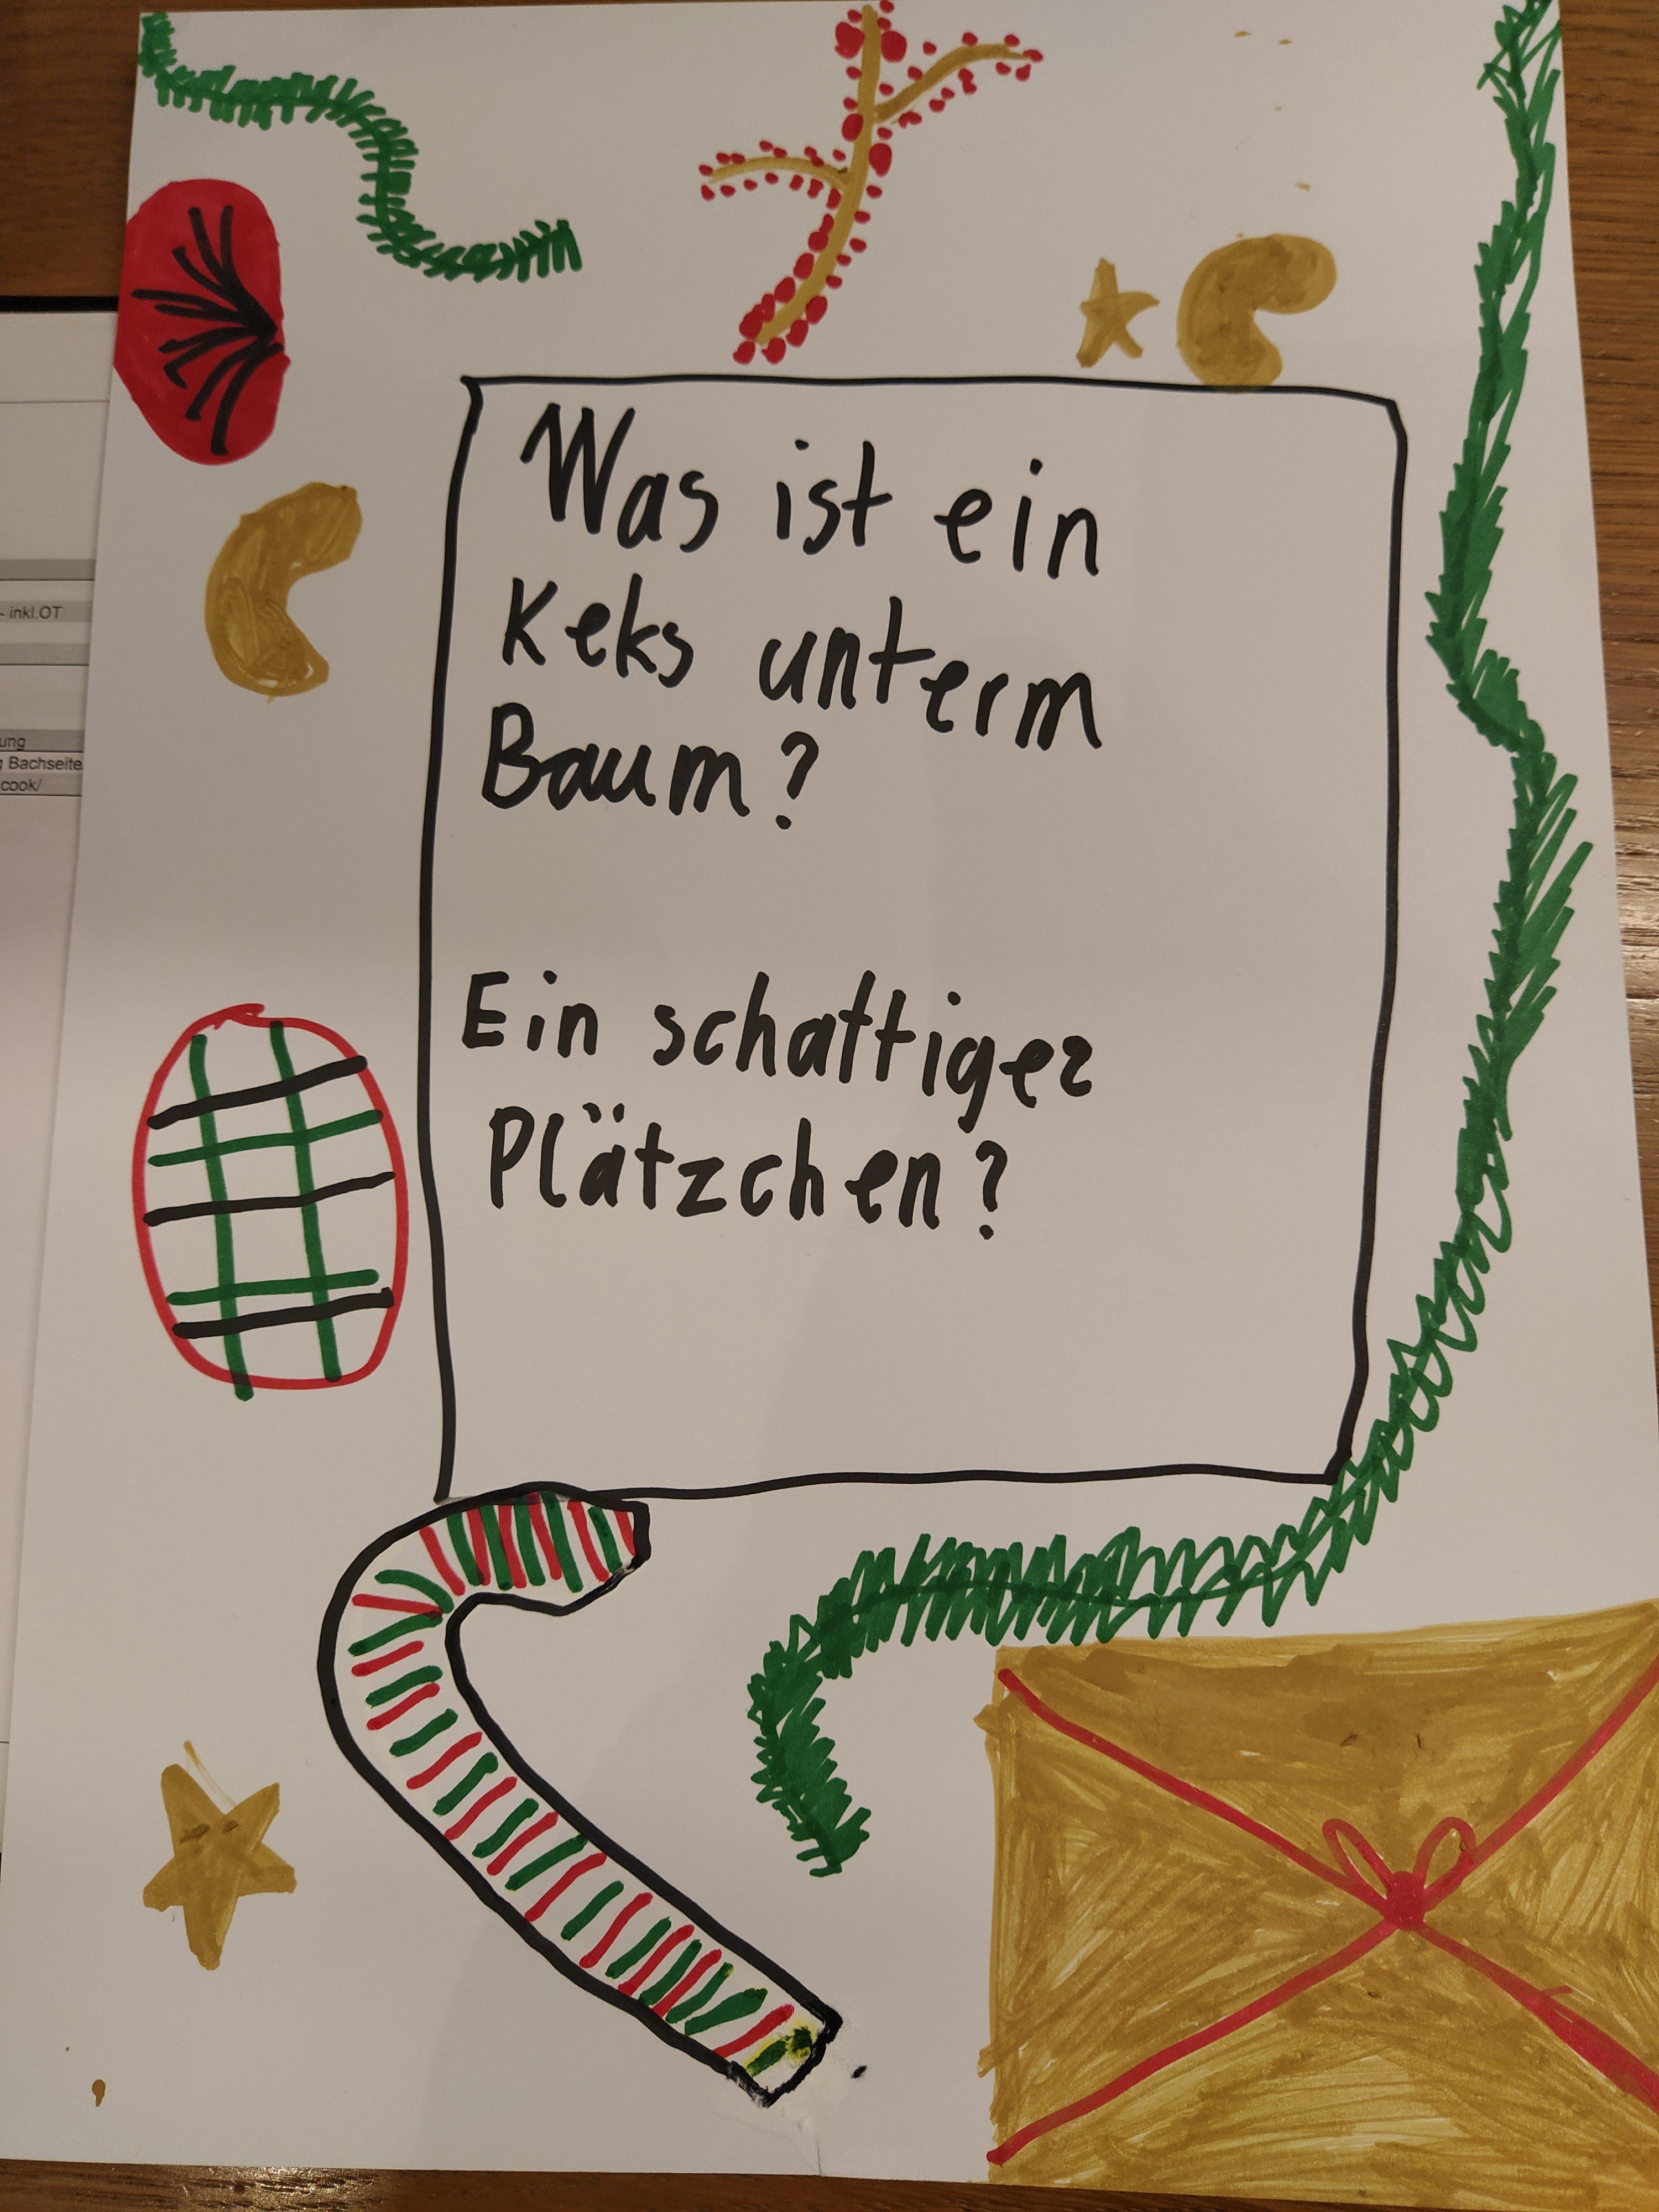 Was ist ein
Keks unterm
Baum?
Ein schattiger
Plätzchen?
- inkl.OT
ung
Bachseite
cook/